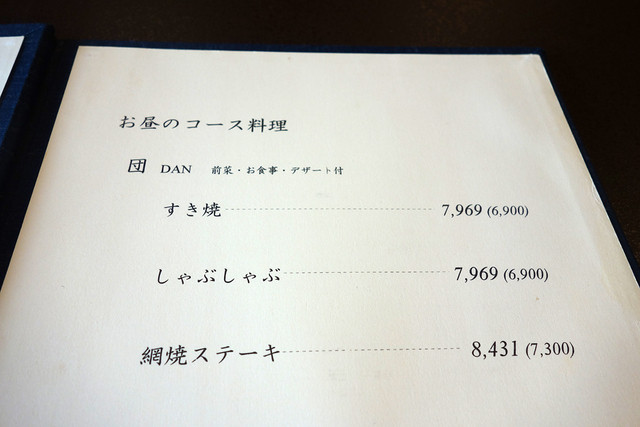 お昼のコース料理
団 DAN 前菜・お食事・デザート付
すき焼 7,969 (6,900)
しゃぶしゃぶ 7,969 (6,900)
網焼ステーキ 8,431 (7,300)